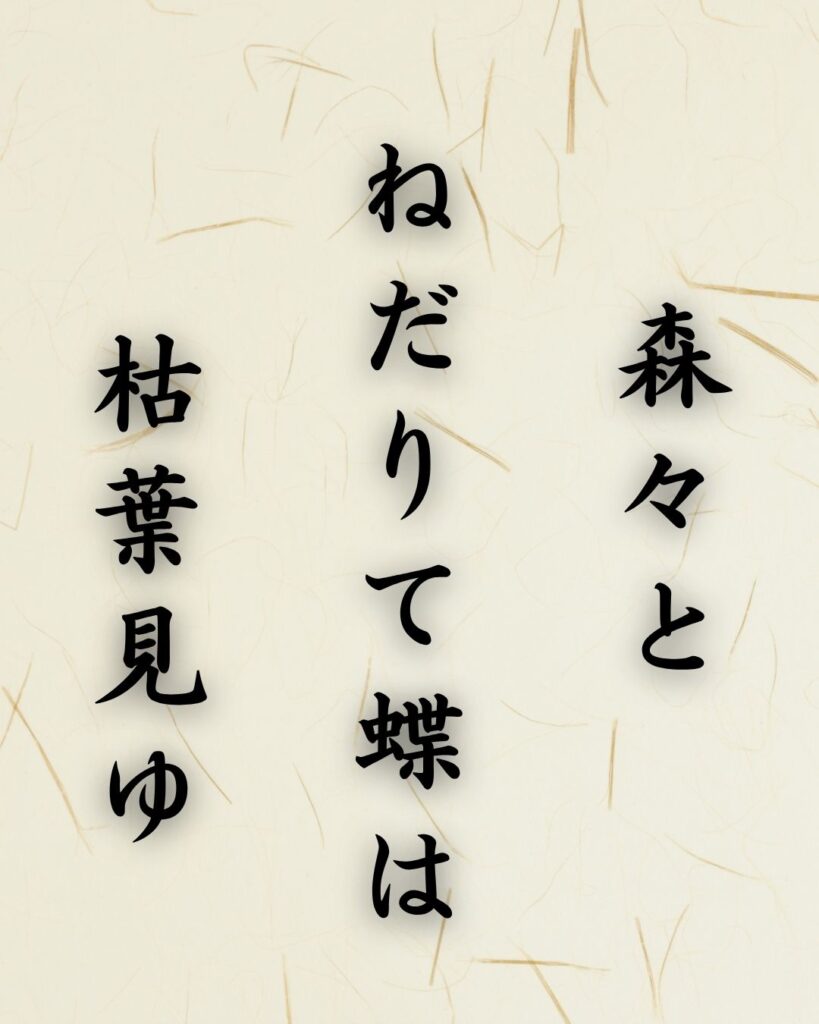 森々と
ねだりて蝶は
枯葉見ゆ